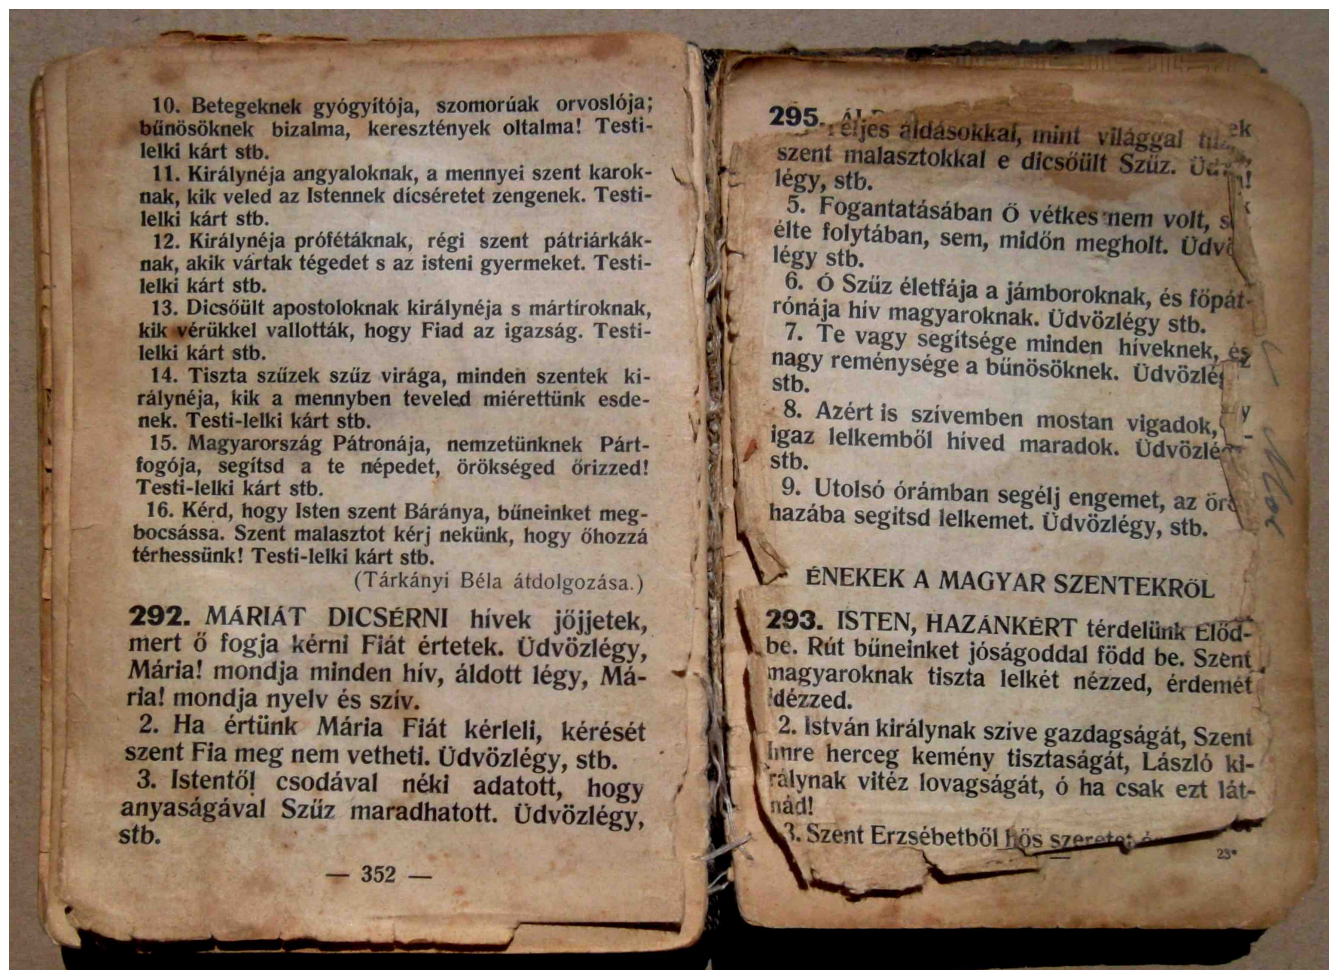 10. Betegeknek gyógyítója, szomorúak orvoslója;
bűnösöknek bizalma, keresztények oltalma! Testi-
lelki kárt stb.
11. Királynéja angyaloknak, a mennyei szent karok-
nak, kik veled az Istennek dícséretet zengenek. Testi-
lelki kárt stb.
12. Királynéja prófétáknak, régi szent pátriárkák-
nak, akik vártak tégedet s az isteni gyermeket. Testi-
lelki kárt stb.
13. Dicsőült apostoloknak királynéja s mártíroknak,
kik vérükkel vallották, hogy Fiad az igazság. Testi-
lelki kárt stb.
14. Tiszta szűzek szűz virága, minden szentek ki-
rálynéja, kik a mennyben teveled miérettünk esde-
nek. Testi-lelki kárt stb.
15. Magyarország Pátronája, nemzetünknek Párt-
fogója, segítsd a te népedet, örökséged őrizzed!
Testi-lelki kárt stb.
16. Kérd, hogy Isten szent Báránya, bűneinket meg-
bocsássa. Szent malasztot kérj nekünk, hogy őhozzá
térhessünk! Testi-lelki kárt stb.
(Tárkányi Béla átdolgozása.)
292. MÁRIÁT DICSÉRNI hívek jőjjetek,
mert ő fogja kérni Fiát értetek. Üdvözlégy,
Mária! mondja minden hív, áldott légy, Má-
ria! mondja nyelv és szív.
2. Ha értünk Mária Fiát kérleli, kérését
szent Fia meg nem vetheti. Üdvözlégy, stb.
3. Istentől csodával néki adatott, hogy
anyaságával Szűz maradhatott. Üdvözlégy,
stb.
— 352 —
295.
áldásokkal, mint világgal
szent malasztokkal e dicsőült Szűz.
légy, stb.
5. Fogantatásában Ő vétkes nem volt,
élte folytában, sem, midőn megholt. Üdvö
légy stb.
6. Ó Szűz életfája a jámboroknak, és főpát-
rónája hív magyaroknak. Üdvözlégy stb.
7. Te vagy segítsége minden híveknek, és
nagy reménysége a bűnösöknek.
stb.
8. Azért is szívemben mostan vigadok,
igaz lelkemből híved maradok.
stb.
9. Utolsó órámban segélj engemet, az
hazába segítsd lelkemet. Üdvözlégy, stb.
ÉNEKEK A MAGYAR SZENTEKRŐL
293. ISTEN, HAZÁNKÉRT térdelünk Előd-
be. Rút bűneinket jóságoddal född be. Szent
magyaroknak tiszta lelkét nézzed, érdemét
idézzed.
2. István királynak szíve gazdagságát, Szent
Imre herceg kemény tisztaságát, László ki-
rálynak vitéz lovagságát, ó ha csak ezt lát-
nád!
3. Szent Erzsébetből hős
23*